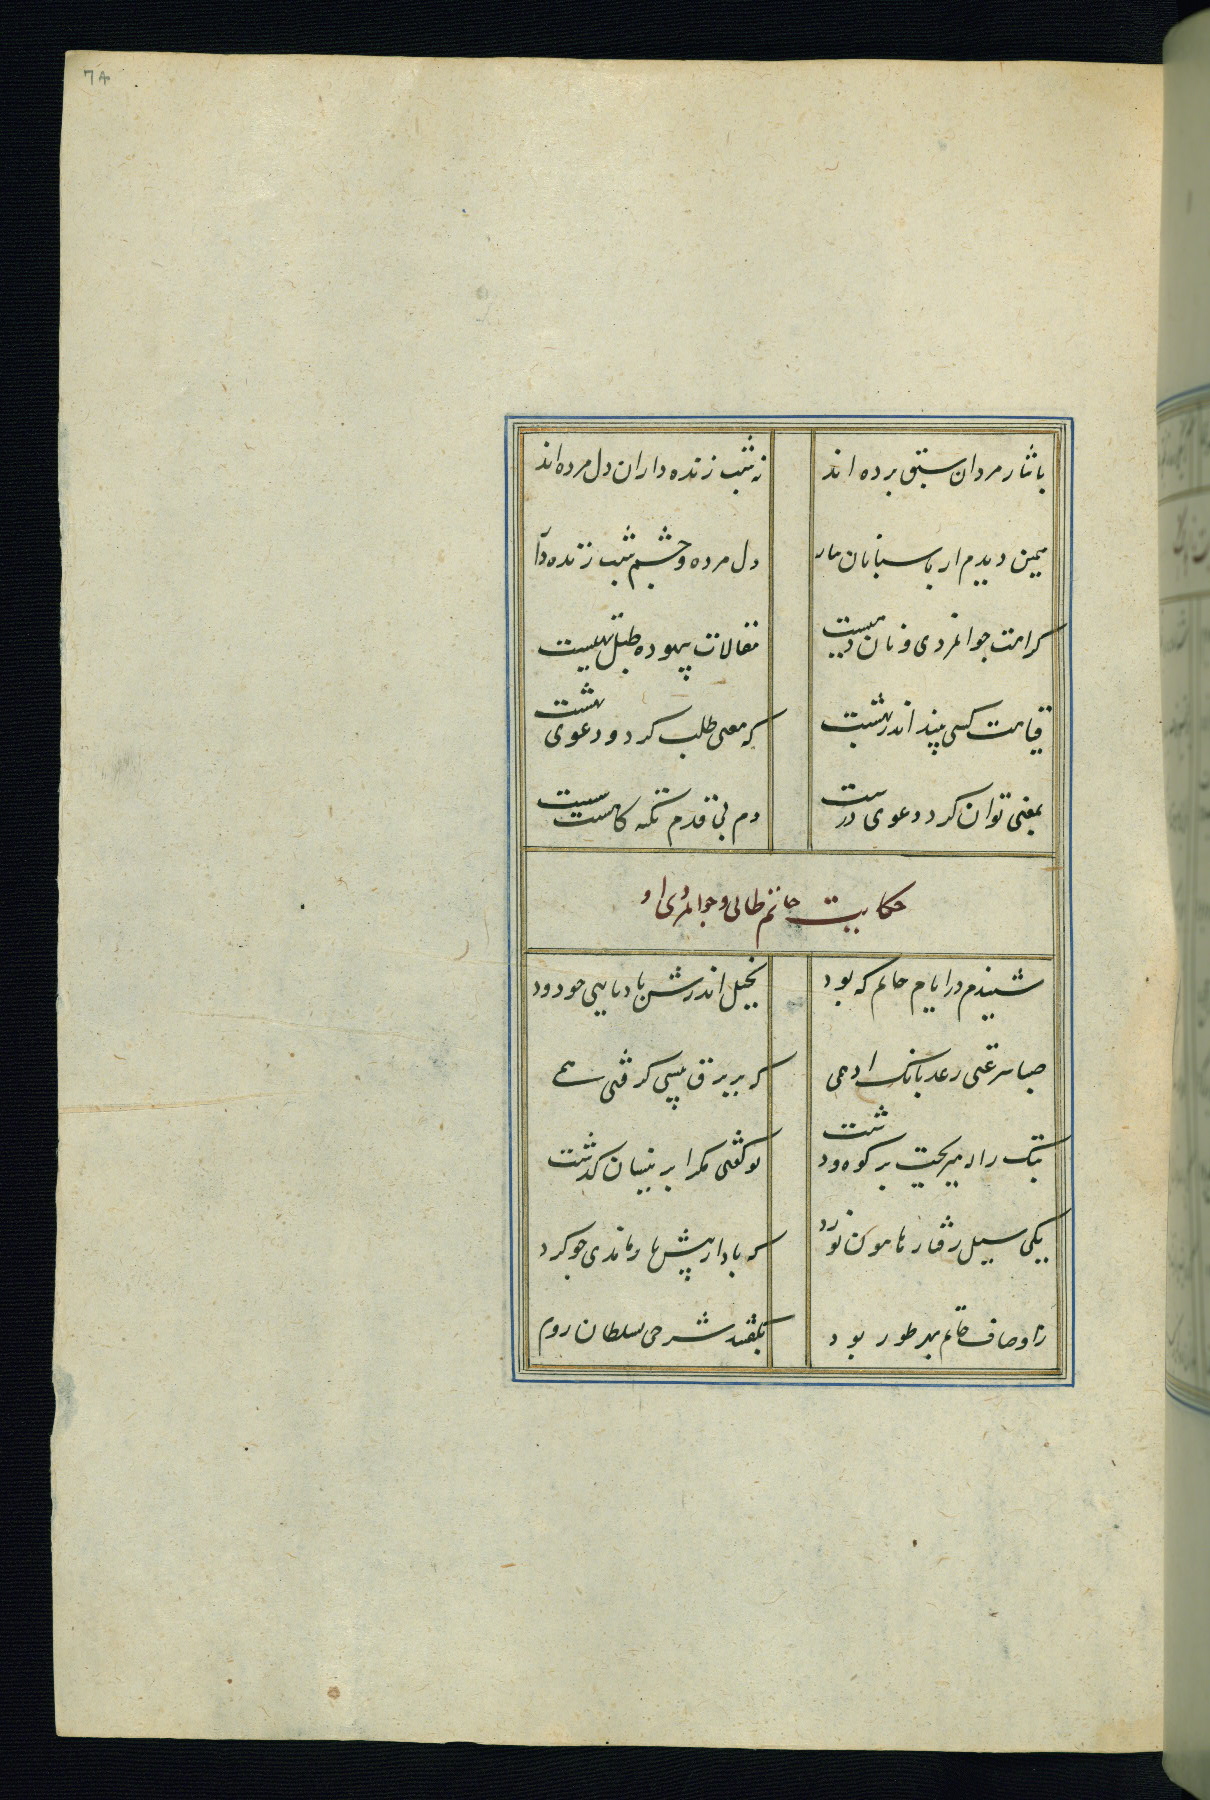 74
بایثار مردان سبق برده اند نه شب زنده داران دل مرده اند
همین دیدم از پاسبانان تتار دل مرده و چشم شب زنده دار
کرامت جوانمردی و نان دهیست مقالات بیهوده طبل تهیست
قیامت کسی بیند اندر بهشت که معنی طلب کرد و دعوی بهشت
بمعنی توان کرد دعوی درست دم بی قدم تکیه کاهست سست
حکایت حاتم طائی و جوانمردی او
شنیدم در ایام حاتم که بود بخیل اندرش بادپایی چو دود
صبا سرعتی رعد بانک ادهمی که بر برق پیشی کرفتی همی
بتک ژاله میریخت بر کوه و دشت تو کفتی مکر ابر نیسان کذشت
یکی سیل رفتار هامون نورد که باد از پیش باز ماندی چو کرد
ز اوصاف حاتم بهر طور بود بکفتند شرحی سلطان روم